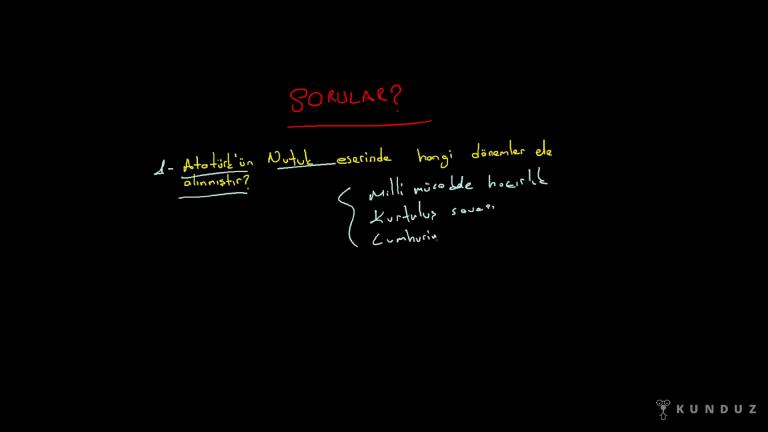 SORULAR?
1- Atatürk'ün Nutuk eserinde hangi dönemler ele
alınmıştır?
Milli mücadele hazırlık
Kurtuluş savaşı
Cumhuriy
KUNDUZ